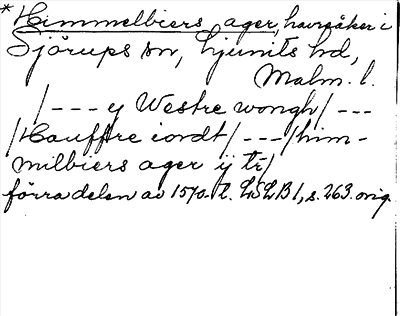 *Himmelbiers ager, havreåker i
Sjörups sn, Ljunits hd,
Malm. l.
/--- y Westre wongh/ ---
/Hauffre iordt/ ---/him-
milbiers ager ij tr/
förra delen av 1570-t. LSLB 1, s. 263. orig.